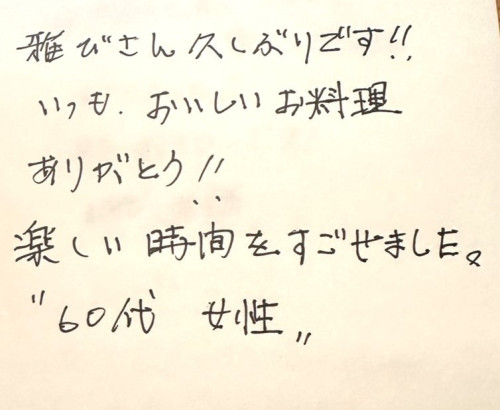 雅びさん久しぶりです!!
いつも、おいしいお料理
ありがとう!!
楽しい時間をすごせました。
"60代 女性"